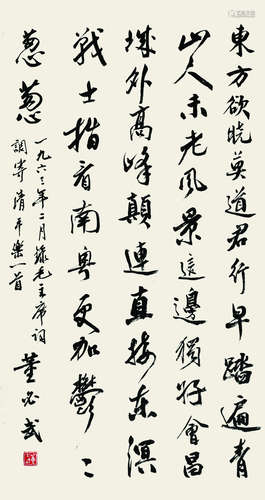 東方欲曉莫道君行早踏遍青
山人未老風景這邊獨好會昌
城外高峰顛連直接東溟
戰士指看南粵更加鬱〻
葱葱
一九六三年二月錄毛主席詞
調寄清平樂一首
董必武